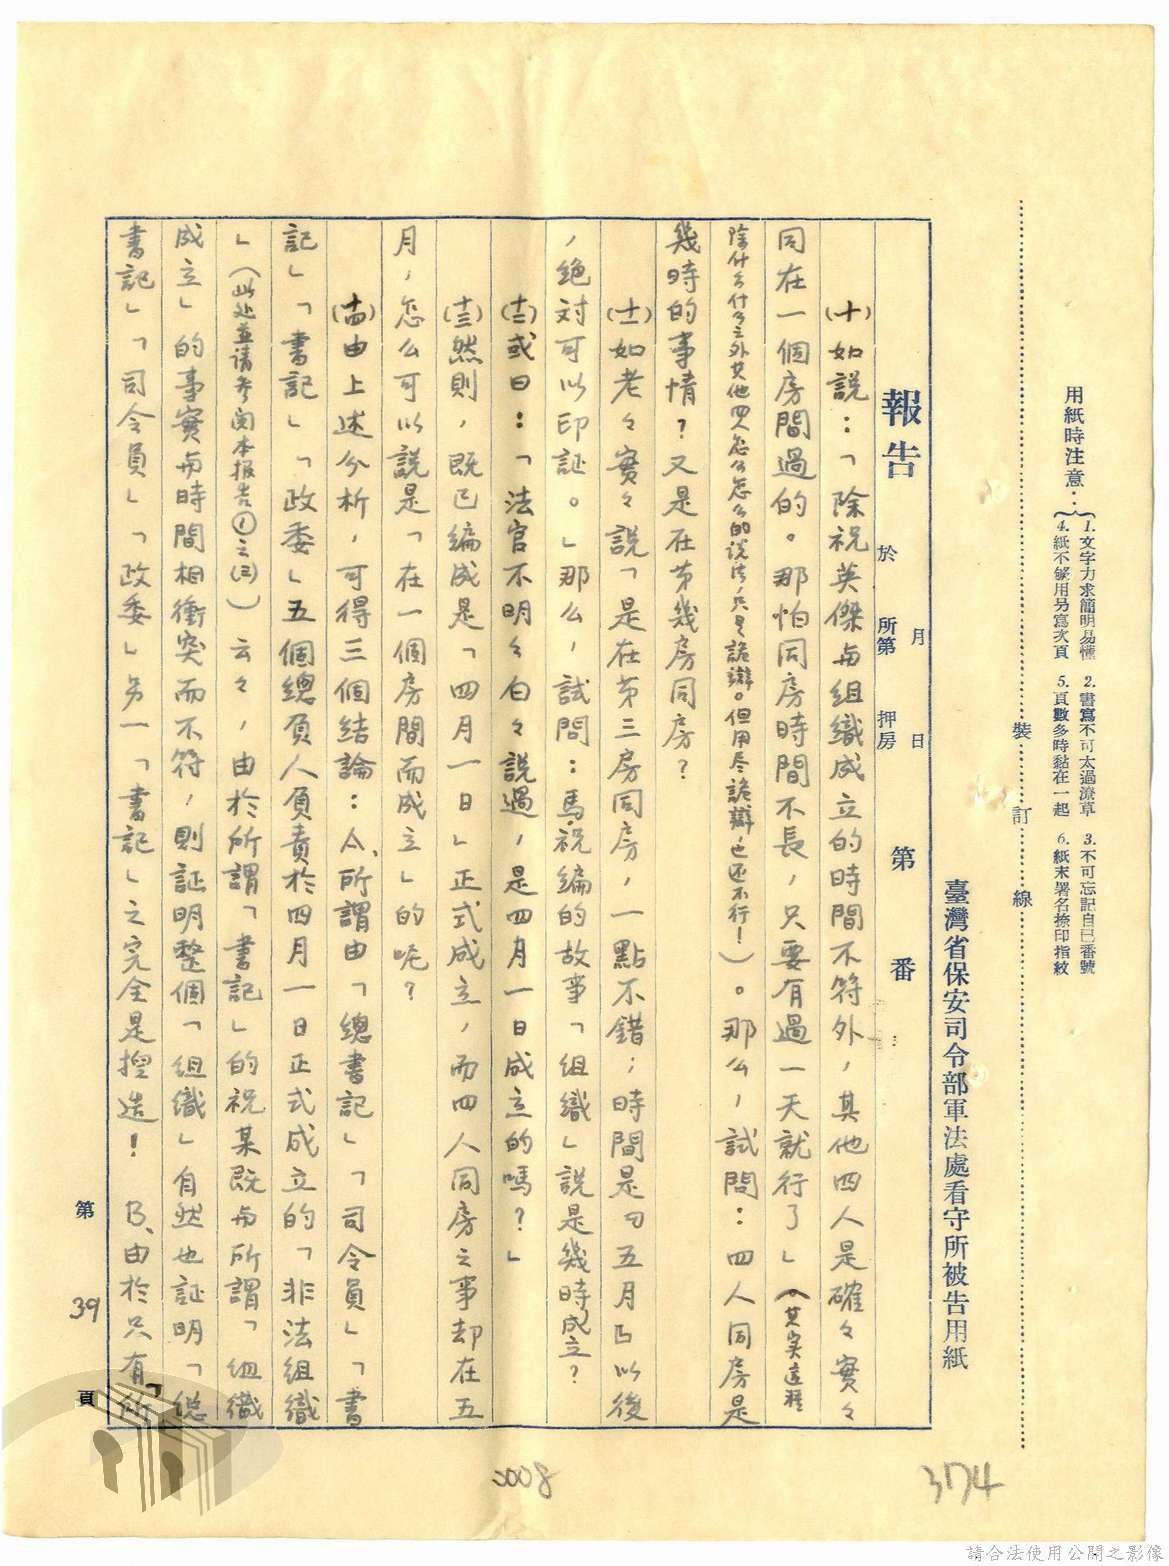 用紙時注意：
1. 文字力求簡明易懂 2. 書寫不可太過潦草 3. 不可忘記自己番號
4. 紙不够用另寫次頁 5. 頁數多時黏在一起 6. 紙末署名捺印指紋
裝 訂 線
臺灣省保安司令部軍法處看守所被告用紙
月 日
報告 於 所第 押房 第 番
(十)如説：「除祝英傑与組織成立的時間不符外，其他四人是確々實々
同在一個房間過的。那怕同房時間不長，只要有過一天就行了」(其实这种
除什么什么之外其他四人怎么怎么的说法，只是詭辯。但用尽詭辯，也还不行！)。那么，試問：四人同房是
幾時的事情？又是在第幾房同房？
(十一)如老々實々説「是在第三房同房，一點不錯；時間是㊁五月以後
，绝对可以印証。」那么，試問：馬祝编的故事「组織」説是幾時成立？
(十二)或曰：「法官不明々白々説過，是四月一日成立的嗎？」
(十三)然則，既已编成是「四月一日」正式成立，而四人同房之事却在五
月，怎么可以説是「在一個房間而成立」的呢？
(十四)由上述分析，可得三個结論：A、所謂由「總書記」「司令員」「書
記」「書記」「政委」五個總負人負責於四月一日正式成立的「非法组織
」(此处並请參阅本报告①之(三))云々，由於所謂「書記」的祝某既与所謂「组織
成立」的事實与時間相衝突而不符，則証明整個「组織」自然也証明「總
書記」「司令員」「政委」另一「書記」之完全是捏造！ B、由於只有「所
第 39 頁
3174
請合法使用公開之影像